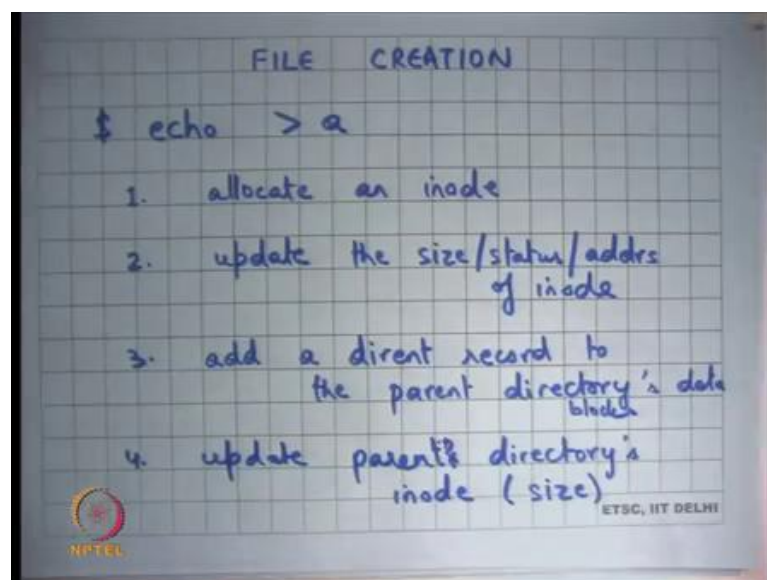 FILE CREATION
$ echo > a
1. allocate an inode
2. update the size/status/addrs
of inode
3. add a dirent record to
the parent directory's data
blocks
4. update parent's directory's
inode (size)
ETSC, IIT DELHI
NPTEL